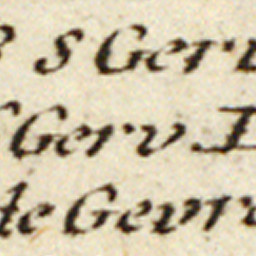 S Gerv
Gerv. I
te Gevr